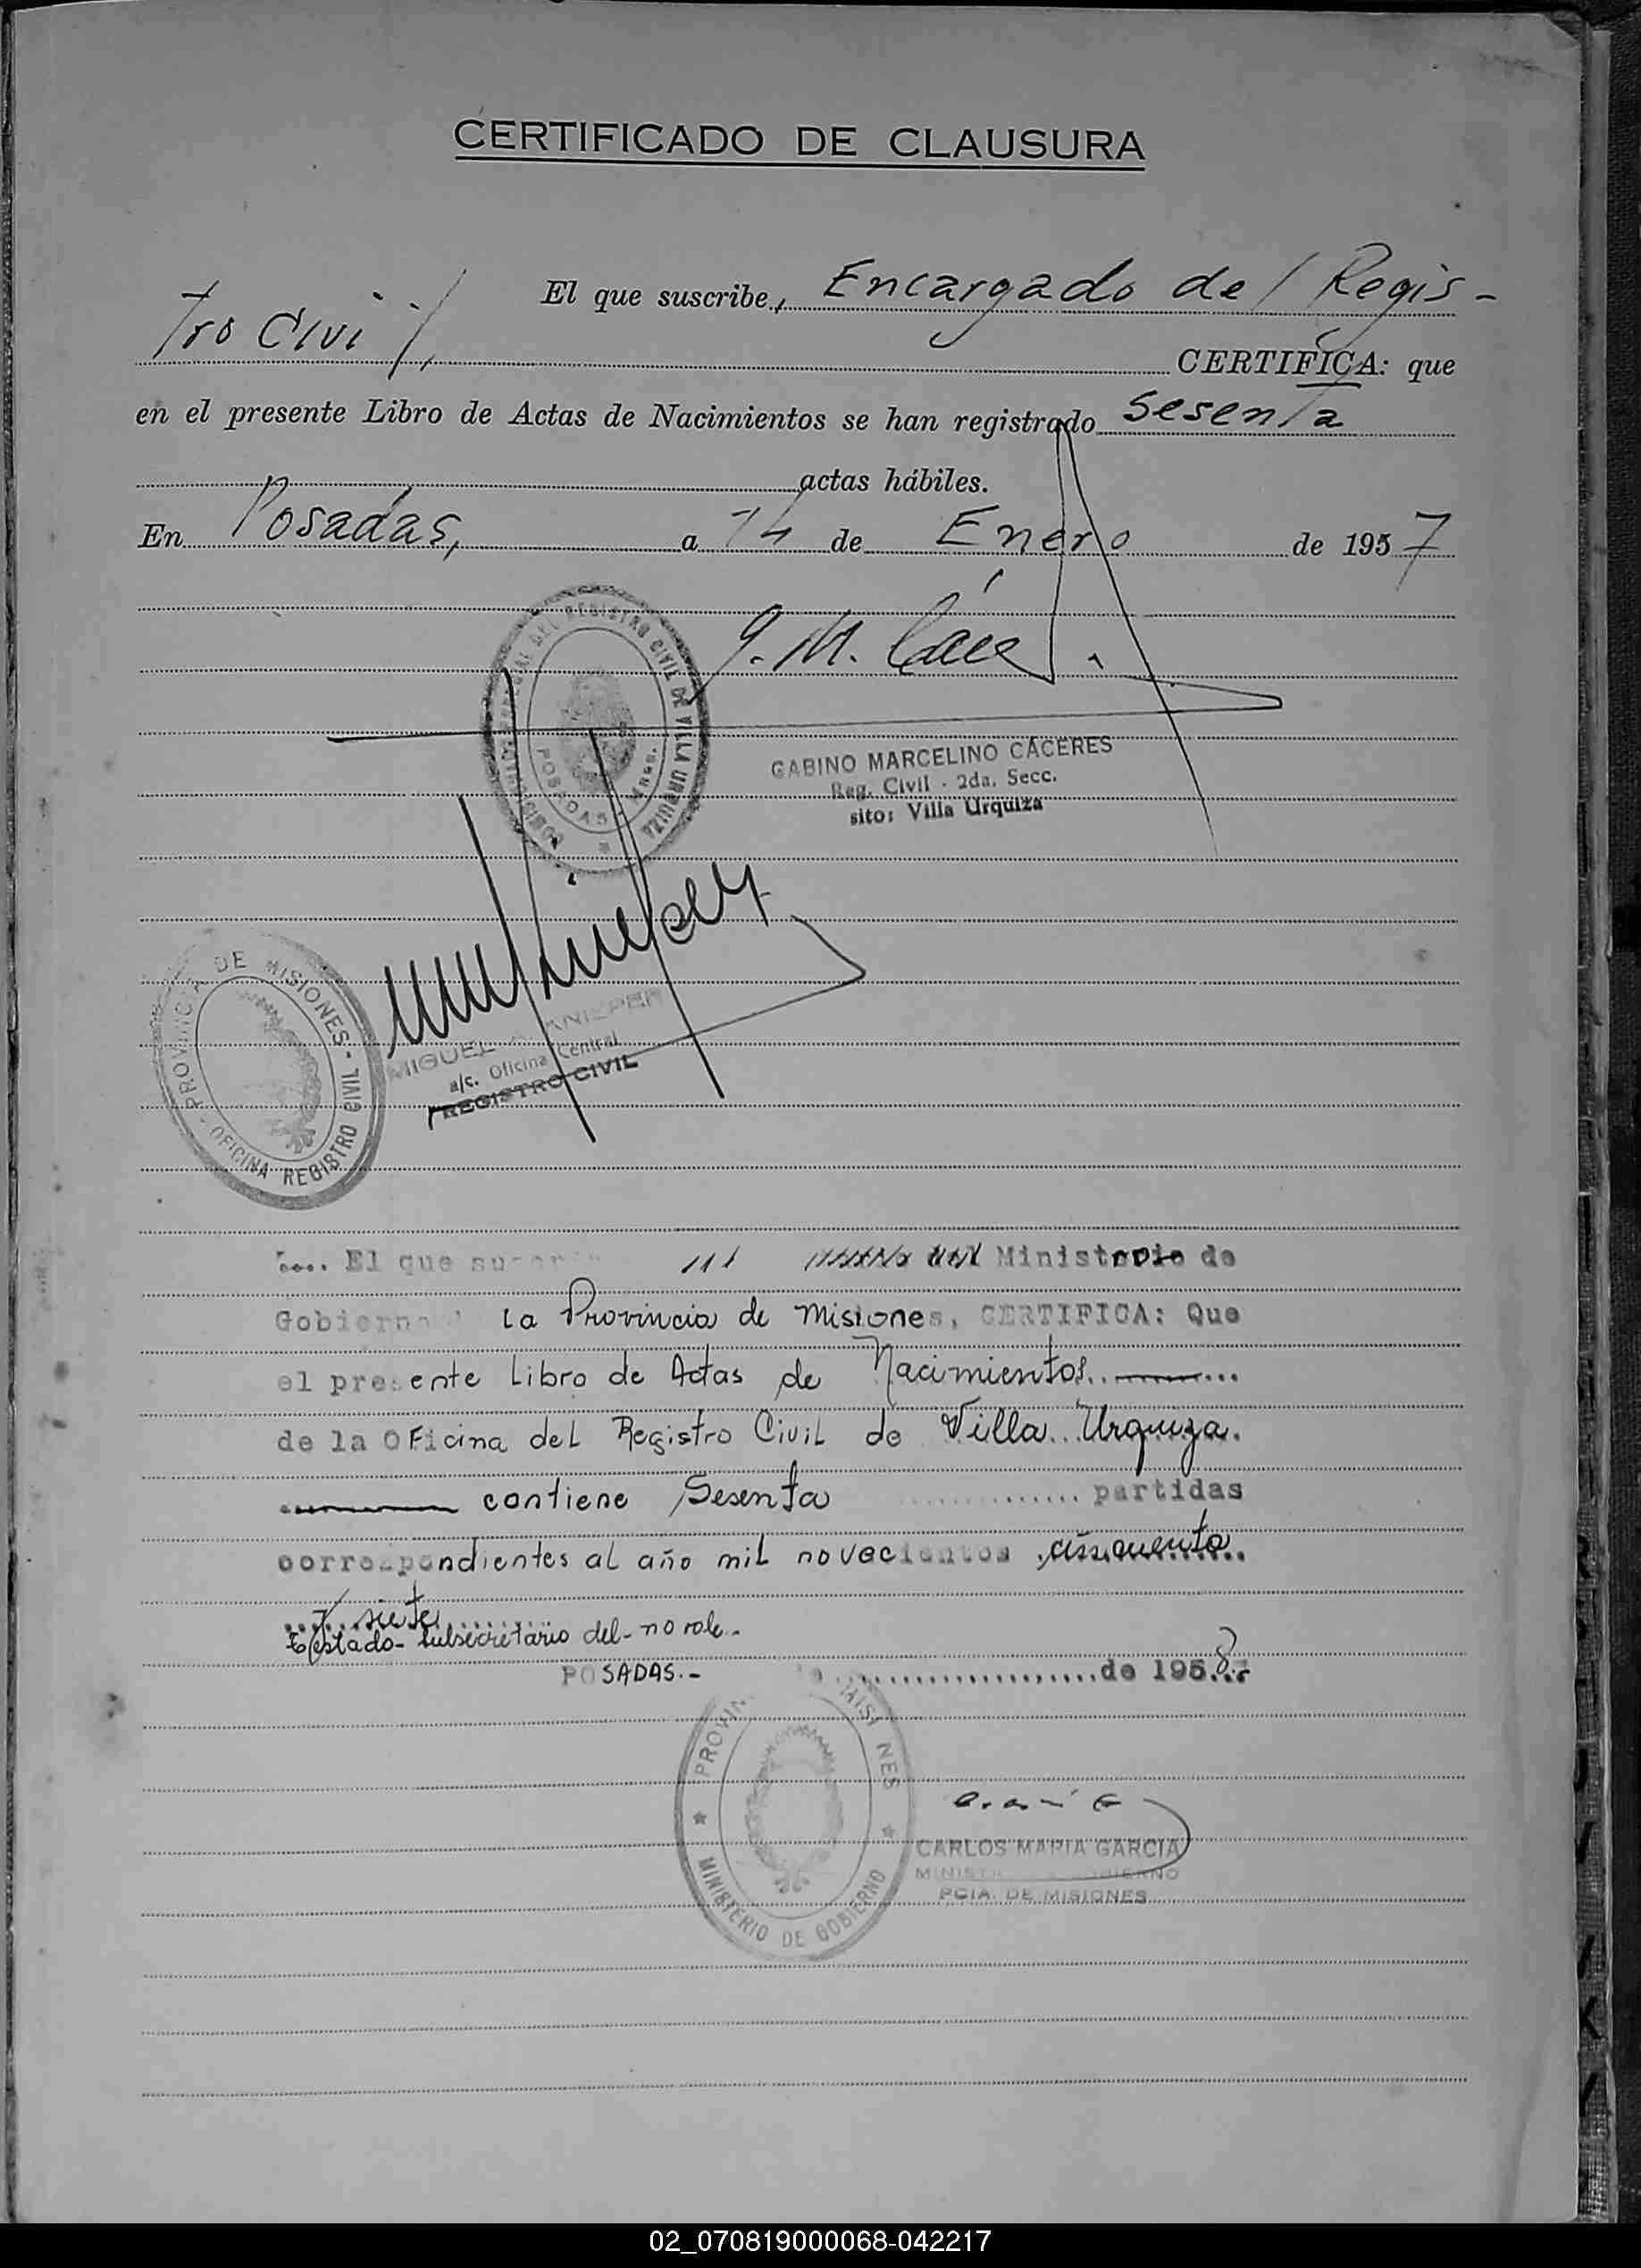 CERTIFICADO DE CLAUSURA
El que suscribe, Encargado del Regis-
tro Civil, CERTIFICA: que
en el presente Libro de Actas de Nacimientos se han registrado sesenta
actas hábiles.
En Posadas, a 14 de Enero de 1957
DEL REGISTRO CIVIL DE VILLA URQUIZA
POSADAS
G. M. Các
GABINO MARCELINO CÁCERES
Reg. Civil - 2da. Secc.
sito: Villa Urquiza
PROVINCIA DE MISIONES - OFICINA REGISTRO CIVIL
MIGUEL A.
a/c. Oficina Central
REGISTRO CIVIL
El que Ministerio de
Gobierno la Provincia de Misiones, CERTIFICA: Que
el presente Libro de Actas de Nacimientos
de la Oficina del Registro Civil de Villa Urquiza.
contiene Sesenta partidas
correspondientes al año mil novecientos cincuenta
y siete
Testado - subsecretario del - no vale.-
POSADAS.- de 1958
MINISTERIO DE GOBIERNO
CARLOS MARIA GARCIA
PCIA. DE MISIONES
02_070819000068-042217